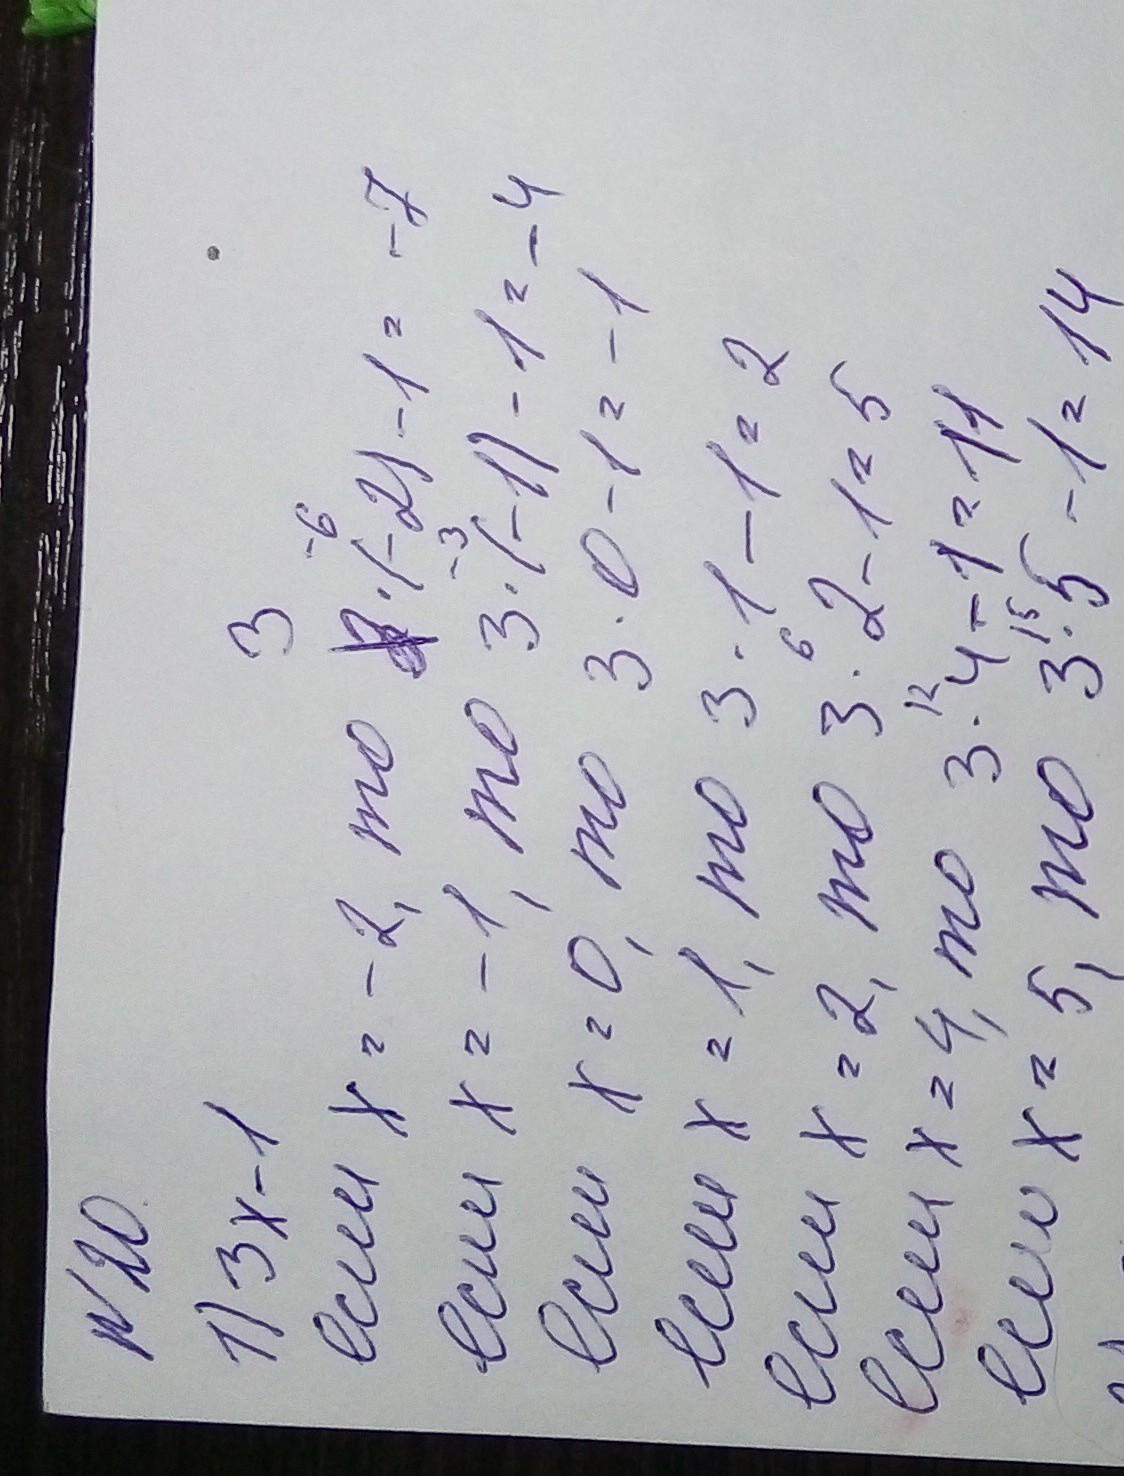 №20
1) 3x-1
3
-6
если x=-2, то 3·(-2)-1=-7
-3
если x=-1, то 3·(-1)-1=-4
если x=0, то 3·0-1=-1
если x=1, то 3·1-1=2
6
если x=2, то 3·2-1=5
12
если x=4, то 3·4-1=11
15
если x=5, то 3·5-1=14